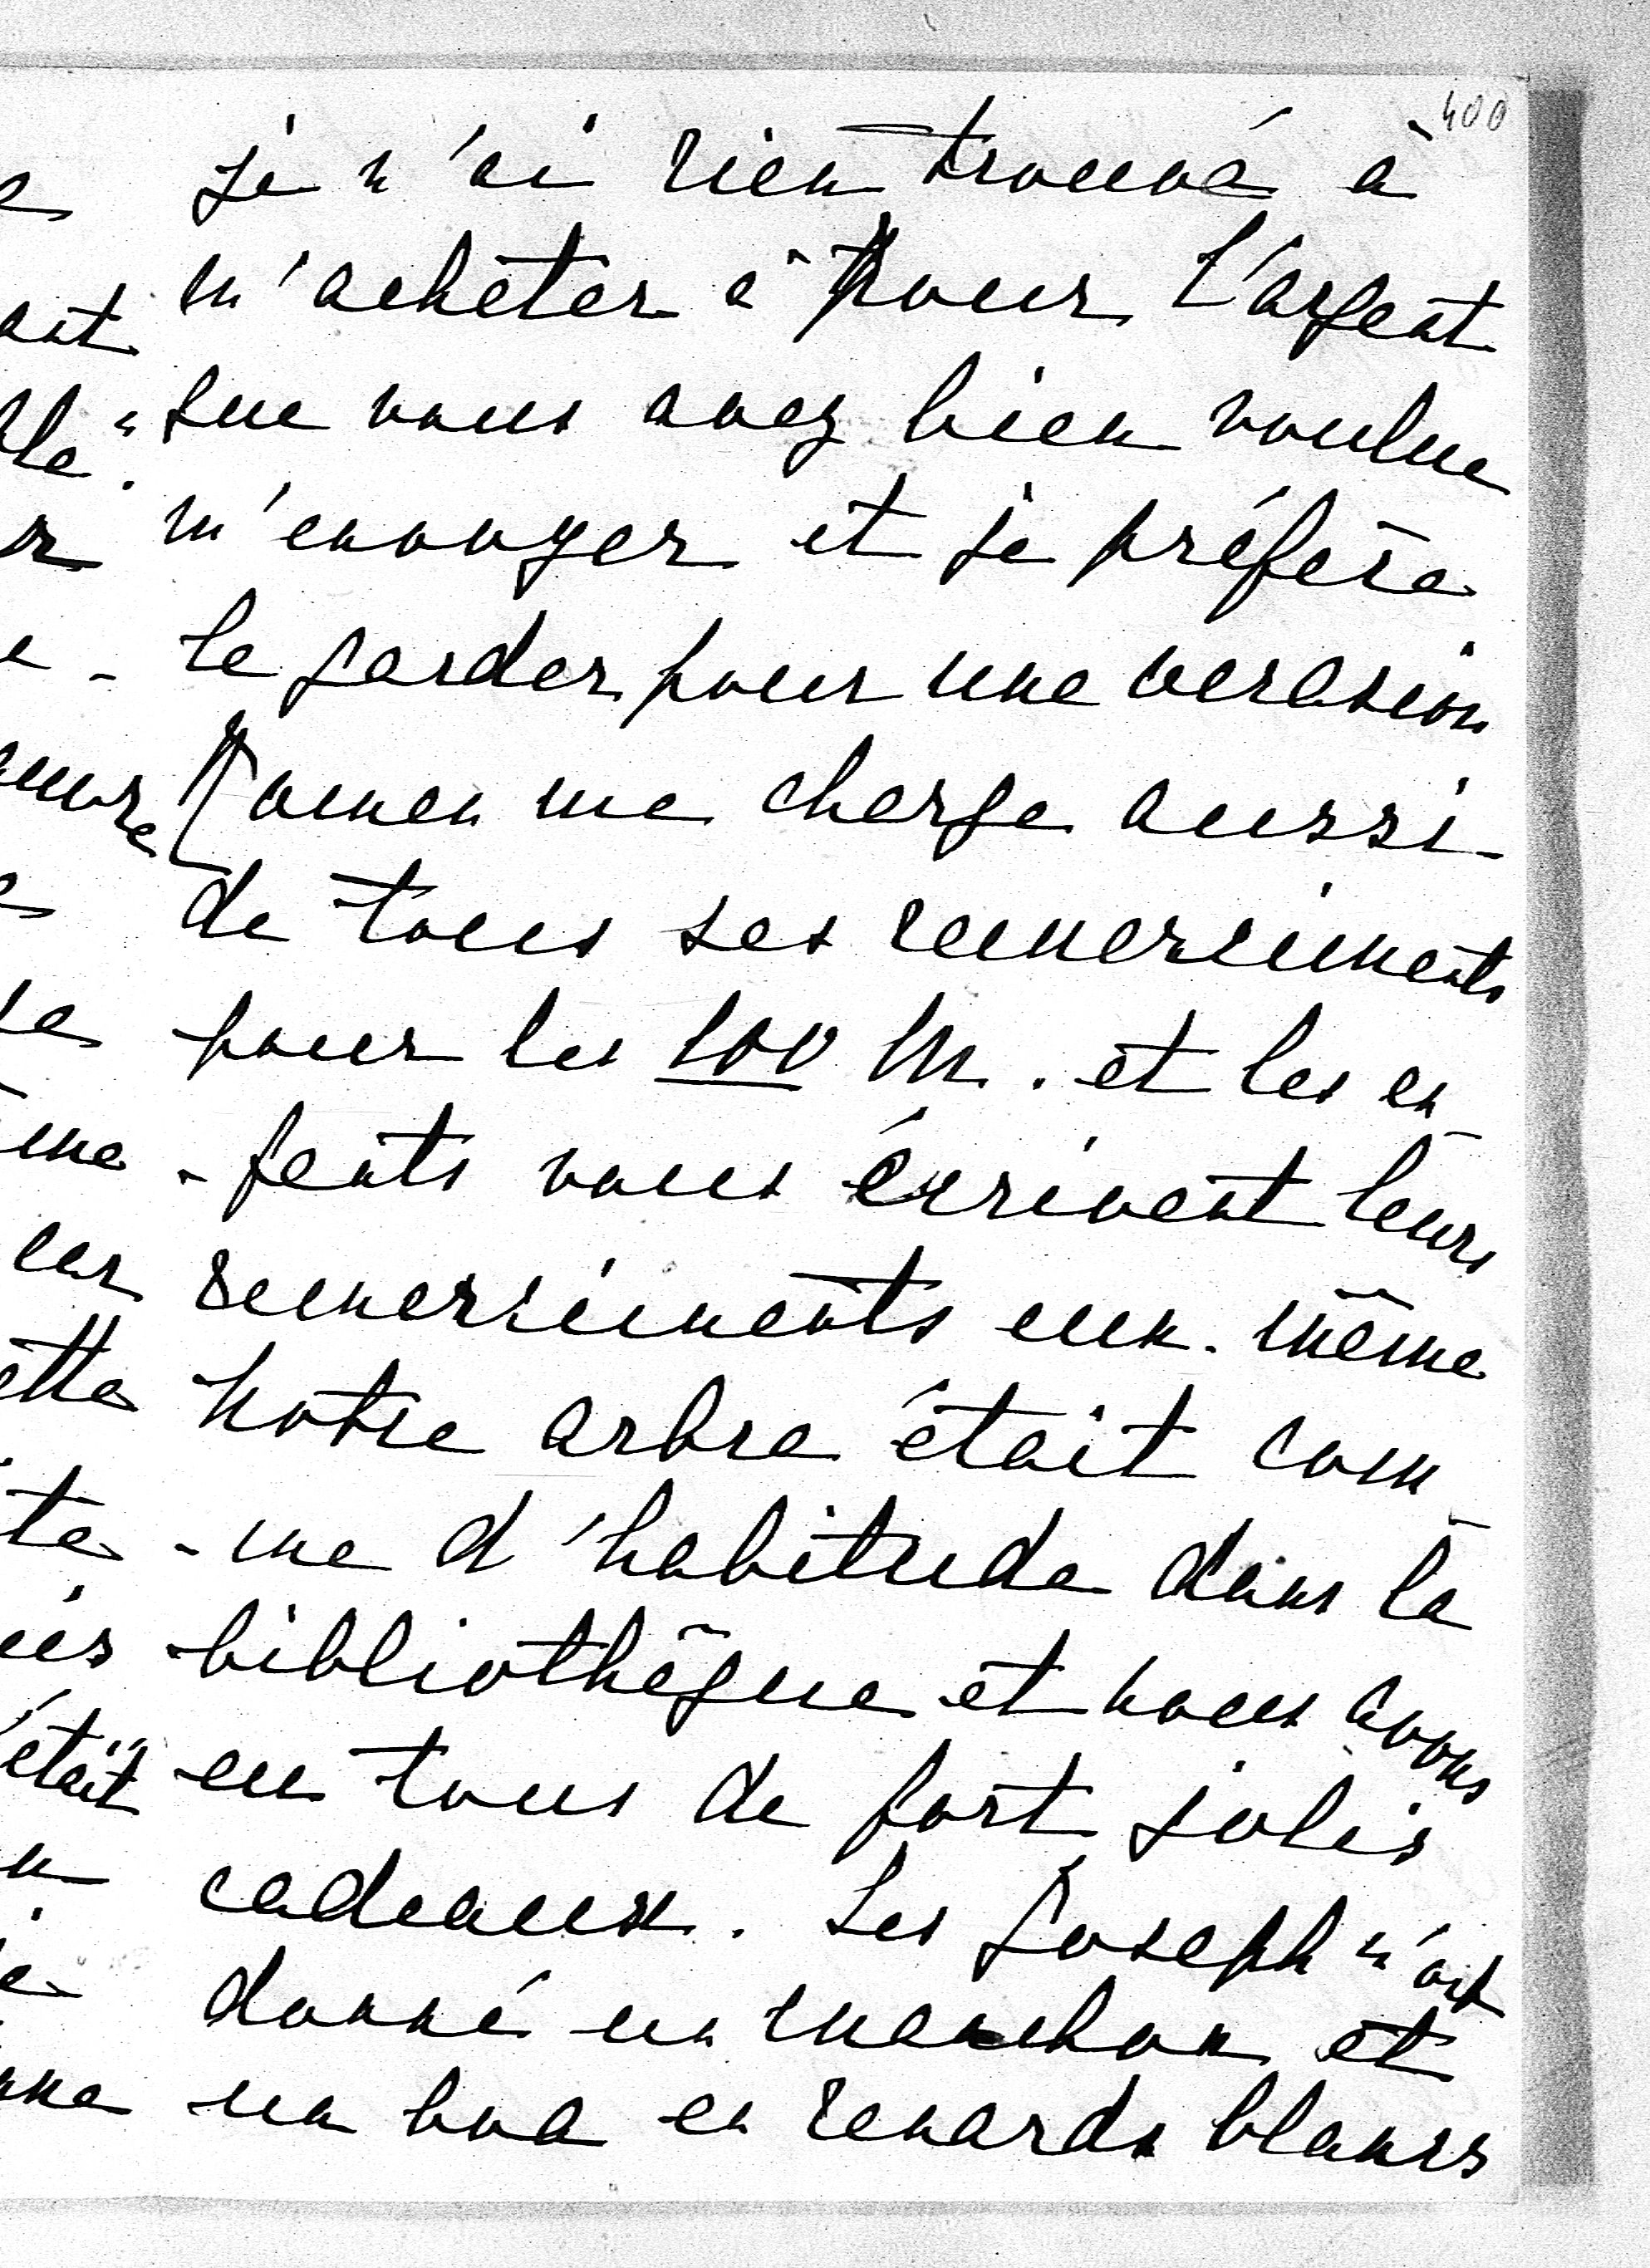 400
je n'ai rien trouvé à
m'acheter à pour l'argent
que vous avez bien voulue
m'envoyer et je préfère
le garder pour une occasion
me charge aussi
de tous ses remerciments
pour les 100 M. et les en
-fents vous écrivent leurs
remerciments eux-même
Notre arbre était com
-me d'habitude dans la
bibliothêque et nous avons
eu tous de fort jolis
cadeaux. Les Joseph m'ont
donné un manchon et
un boa en renards blancs